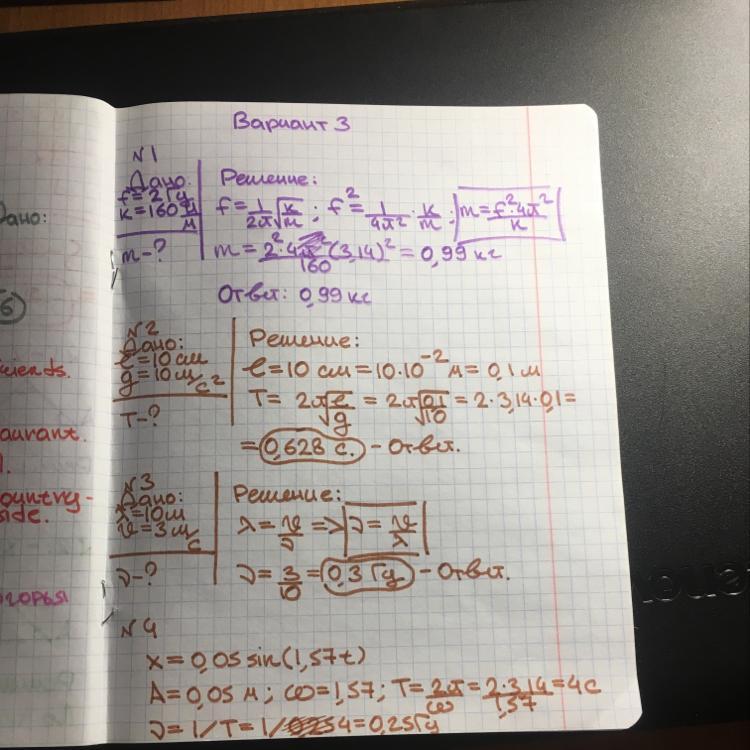 Дано:
6
riends.
aurant.
ountry-
side.
огорья
Вариант 3
N1
Дано:
f = 2 Гц
k = 160 Н/м
m - ?
Решение:
f = 1/2π √(k/m); f² = 1/4π² · k/m; m = f²·4π²/k
m = 2²·4·(3,14)²/160 = 0,99 кг
Ответ: 0,99 кг
N2
Дано:
ℓ = 10 см
g = 10 м/с²
T - ?
Решение:
ℓ = 10 см = 10·10⁻² м = 0,1 м
T = 2π√(ℓ/g) = 2π√(0,1/10) = 2·3,14·0,1 =
= 0,628 с. - Ответ.
N3
Дано:
λ = 10 м
v = 3 м/с
ν - ?
Решение:
λ = v/ν => ν = v/λ
ν = 3/10 = 0,3 Гц - Ответ.
N4
x = 0,05 sin(1,57t)
A = 0,05 м; ω = 1,57; T = 2π/ω = 2·3,14/1,57 = 4 с
ν = 1/T = 1/4 = 0,25 Гц